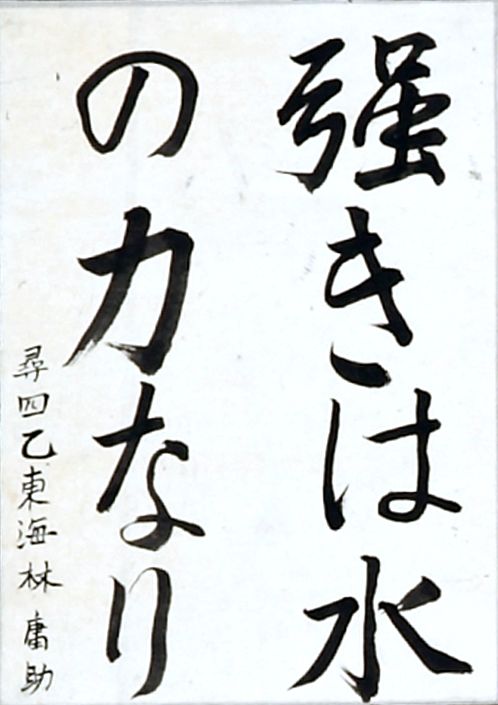 強きは水
の力なり
尋四乙東海林庸助